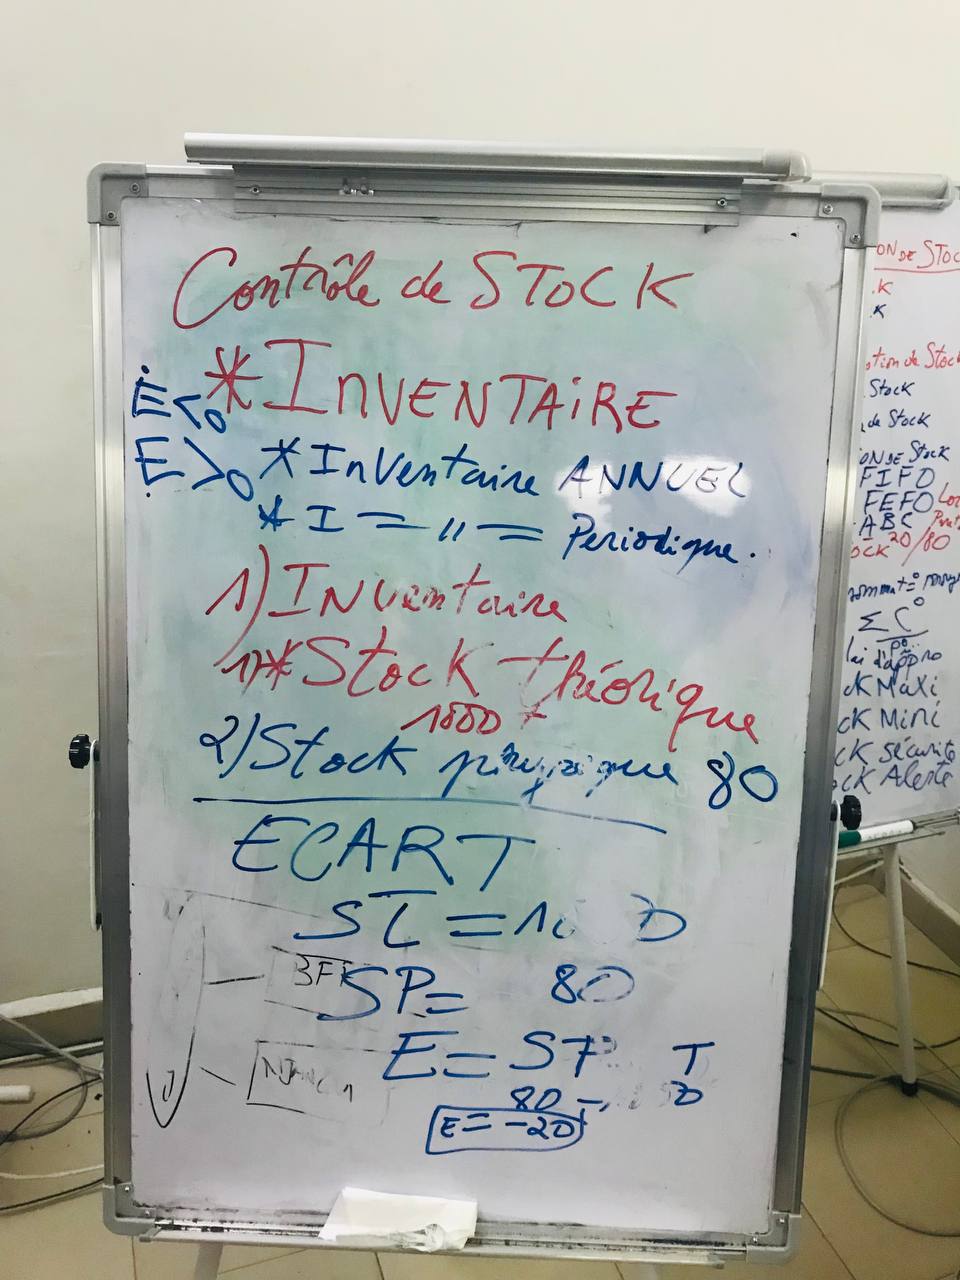 Contrôle de STOCK
* INVENTAIRE
E<0
E>0
* Inventaire ANNUEL
* I = " = Periodique.
1) Inventaire
1)* Stock théorique
1000 t
2) Stock physique 80
ECART
ST = 1
SP = 80
E = SP T
80 -
E = -20
ON DE STOC
.K
K
Stock
de Stock
ON DE Stock
FIFO
FEFO
ABC
OCK 20/80
Σ C°
d'appro
CK Maxi
CK Mini
CK Sécurité
OCK Alerte